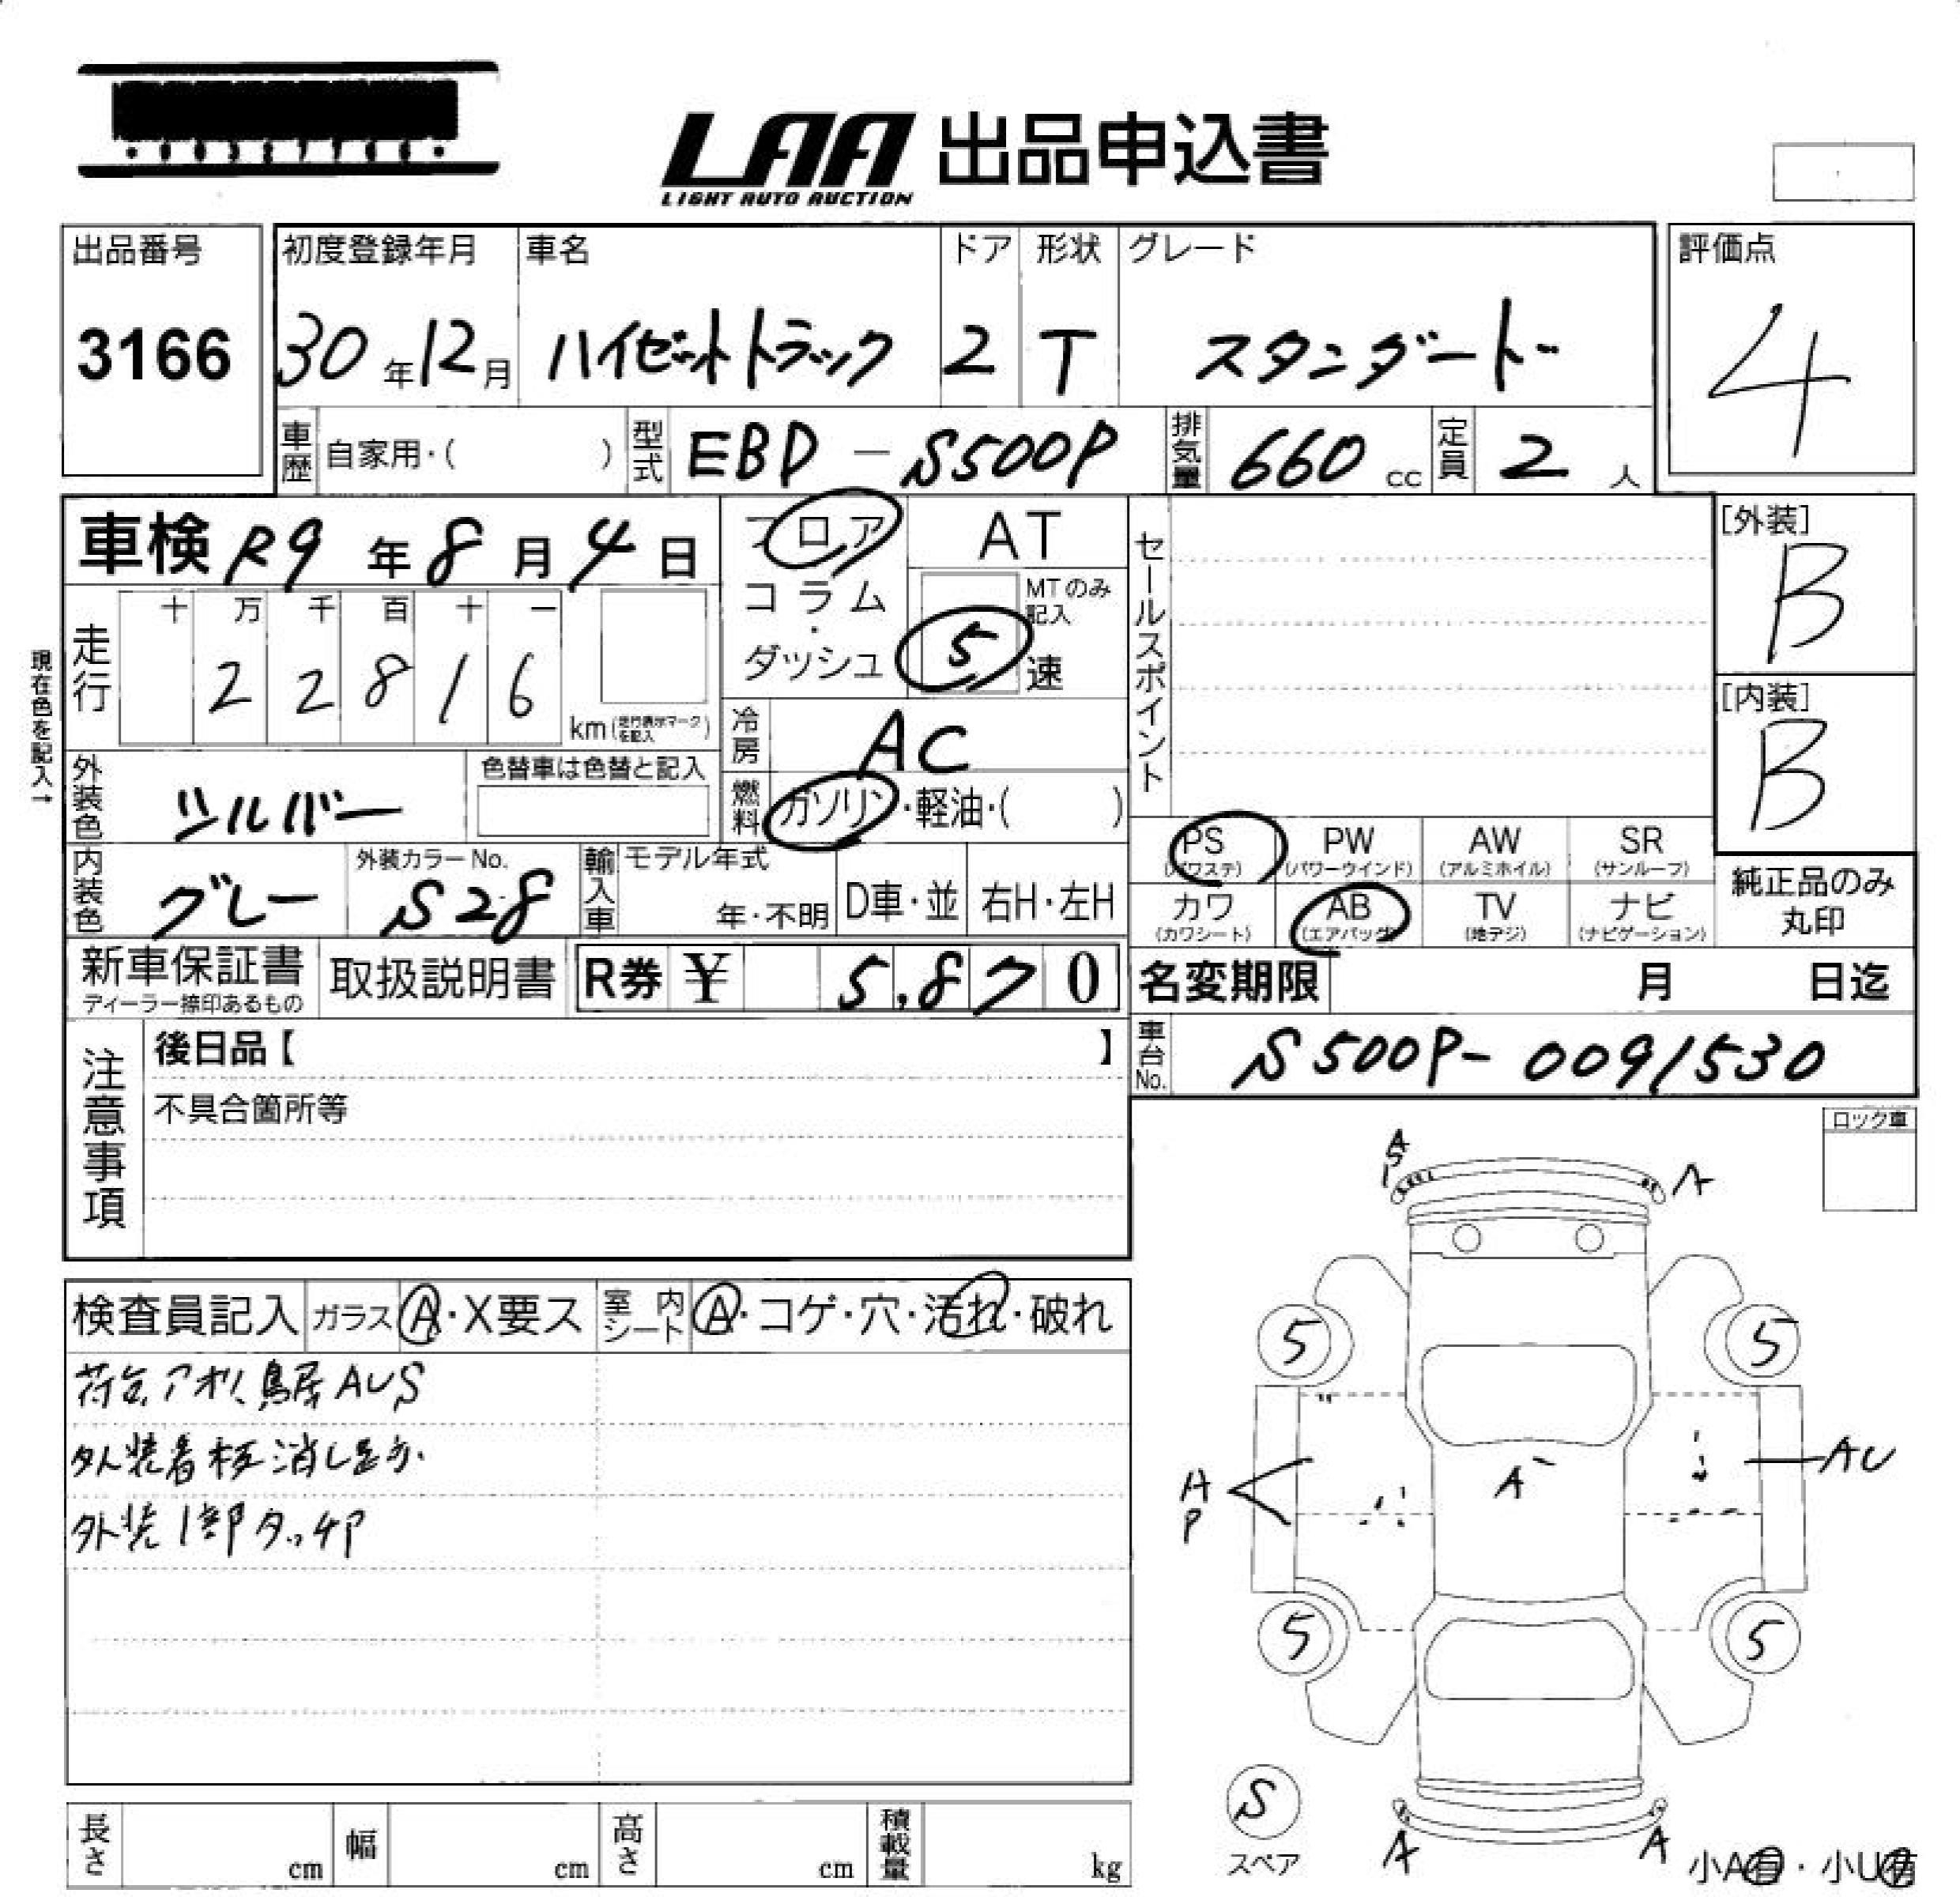 LAA 出品申込書
LIGHT AUTO AUCTION
出品番号
3166
初度登録年月
30年12月
車名
ハイゼットトラック
ドア
2
形状
T
グレード
スタンダード
評価点
4
車歴 自家用・( )
型式 EBD-S500P
排気量 660 cc
定員 2 人
車検 R9年8月4日
走行
十 万 千 百 十 一
2 2 8 1 6
km(走行表示マークを記入)
現在色を記入→
フロア
コラム
・
ダッシュ
AT
MTのみ記入
5 速
冷房 AC
燃料 ガソリン・軽油・( )
セールスポイント
[外装]
B
[内装]
B
外装色 シルバー
色替車は色替と記入
内装色 グレー
外装カラーNo.
S28
輸入車
モデル年式
年・不明
D車・並
右H・左H
PS
(パワステ)
PW
(パワーウインド)
AW
(アルミホイル)
SR
(サンルーフ)
カワ
(カワシート)
AB
(エアバッグ)
TV
(地デジ)
ナビ
(ナビゲーション)
純正品のみ
丸印
新車保証書
ディーラー捺印あるもの
取扱説明書
R券 ¥ 5,870
名変期限 月 日迄
車台No. S500P-0091530
注意事項
後日品【 】
不具合箇所等
ロック車
検査員記入
ガラス A・X要ス
室内シート A・コゲ・穴・汚れ・破れ
荷台、アオリ、鳥居AUS
外装看板消し跡
外装1部タッチP
A
S
A
5
5
A
P
A
AU
5
5
S
スペア
A
A
小A有・小U有
長さ cm
幅 cm
高さ cm
積載量 kg